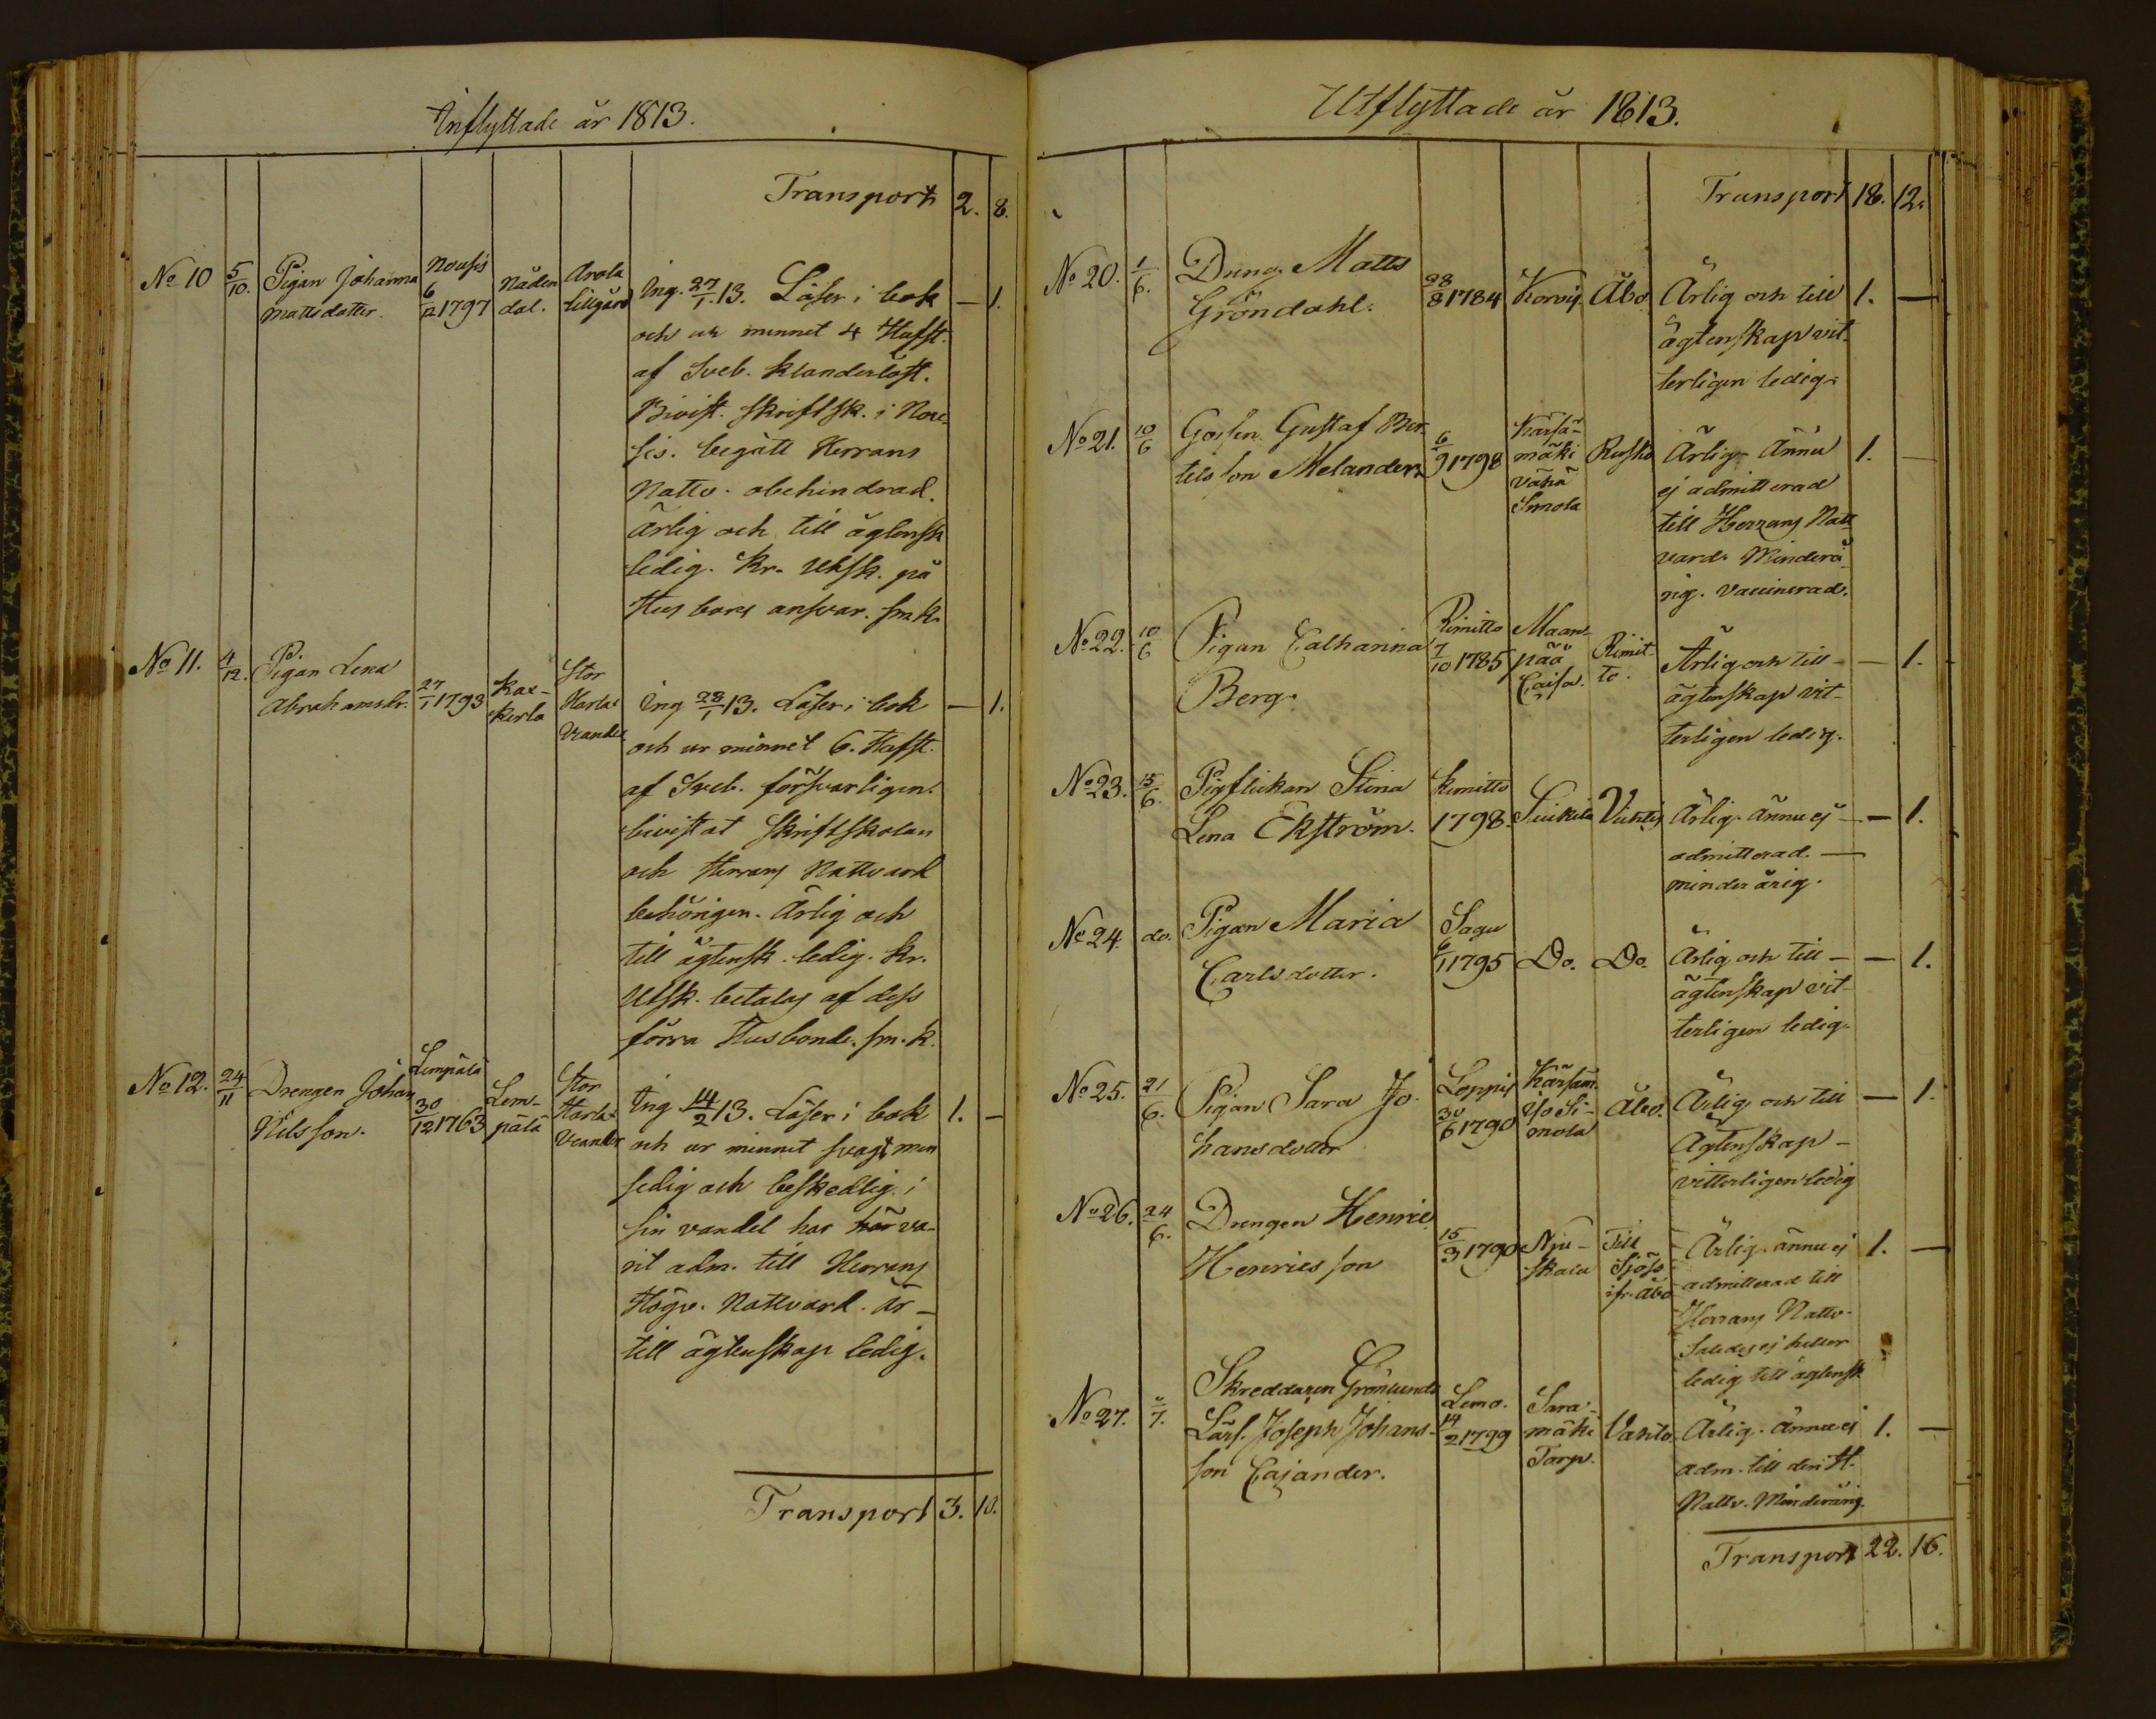 Inflyttade år 1813.
Transport 2. 8.
No 10 5/10. Pigan Johanna Mattsdotter. Nousis 6/12 1797 Nådendal. Arola lillgård Ing. 27/1. 13. Läser i bok — 1.
och ur minnet 4 Hufst.
af Sveb.
Bivist. skriftsk. i Nou-
sis. begått Herrans
Nattv. obehindrad.
Ärlig och till ägtensk
ledig. Kr. Utsk. på
Husbons ansvar. sm. k.
No 11. 4/12. Pigan Lena Abrahamsdr. 27/1 1793 Kax-kerta Stor Harla Ing 28/1 13. Läser i bok — 1.
och ur minnet 6. Hufst.
af Sveb. försvarligen.
bivistat Skriftskolan
och Herrans Nattvard
behörigen. Ärlig och
till ägtensk. ledig. Kr.
Utsk. betalas af dess
förra Husbonde. sm. k.
No 12. 24/11 Drengen Johan Nilsson. Lempälä 30/12 1763 Lem-pälä Stor Harla Ing 14/2 13. Läser i bok 1. —
och ur minnet svagt men
sedig och beskedlig i
sin vandel har här va-
rit adm. till Herrans
Högv. Nattvard. Är —
till ägtenskap ledig.
Transport 3. 10.
Utflyttade år 1813.
Transport 18. 12.
No 20. 1/6. Dreng. Matts
Gröndahl. 28/8 1784 Korois Åbo Ärlig och till 1. —
ägtenskap vit-
terligen ledig.
No 21. 10/6 Gossen Gustaf Ber-
tils son Melander. 6/9 1798 Kärsä-mäki vähä Simola Rusko Ärlig. Ännu 1. —
ej admitterad
till Herrans Natt-
vard. Minderå-
rig. Vaccinerad.
No 22. 10/6 Pigan Catharina
Berg. Rimitto 7/10 1785 Maan-pää Caisa. Rimit-to. Ärlig och till — — 1.
ägtenskap vit-
terligen ledig.
No 23. 15/6. Pigflickan Stina
Lena Ekström. Rimitto 1798. Suikila Vichtis Ärlig. Ännu ej — — 1.
admitterad. —
minderårig.
No 24. do. Pigan Maria
Carlsdotter. Sagu 6/11 1795 Do. Do. Ärlig och till — — 1.
ägtenskap vit-
terligen ledig.
No 25. 21/6. Pigan Sara Jo-
hansdotter Loppis 30/6 1790 Kärsäm. iso Si-mola Åbo. Ärlig och till — 1.
Ägtenskap —
vitterligen ledig
No 26. 24/6. Drengen Henric
Henrics son 15/3 1790 Nju-skala Till Sjöss ifr. Åbo Ärlig. ännu ej 1. —
admitterad till
Herrans Nattv.
Saledes ej heller
ledig till ägtensk
No 27. 2/7. Skreddaren Grönlunds
Lärl. Joseph Johans-
son Cajander. Lemo. 14/2 1799 Sara-mäki Torp. Vahto. Ärlig. Ännu ej 1. —
adm. till den H.
Nattv. Minderårig.
Transport 22. 16.